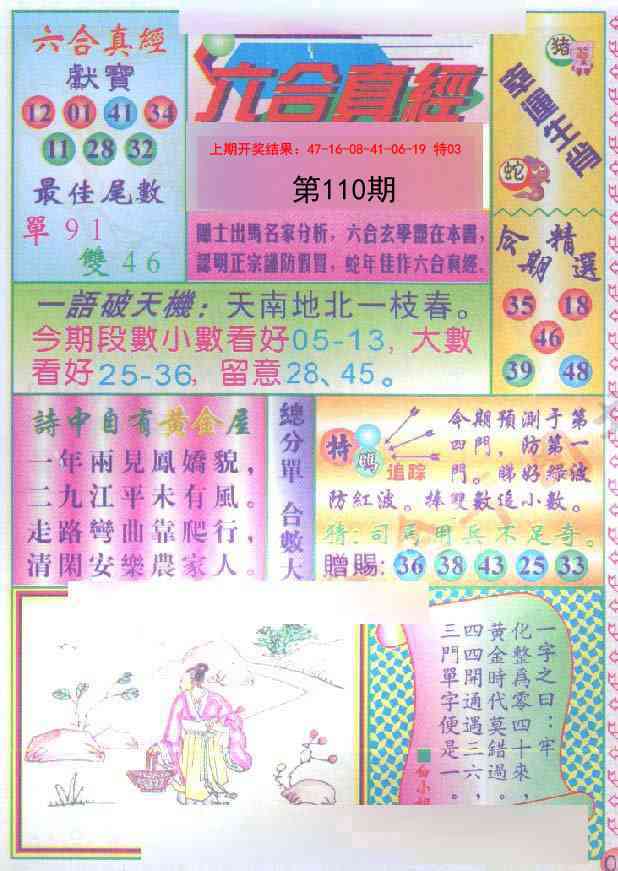 六合真經
獻寶
12 01 41 34
11 28 32
最佳尾數
單91
雙46
六合真經
上期开奖结果: 47-16-08-41-06-19 特03
第110期
隱士出馬名家分析，六合玄學盡在本書，
認明正宗謹防假冒，蛇年佳作六合真經。
猪
蛇
今期
精選
35 18
46
39 48
一語破天機：天南地北一枝春。
今期段數小數看好05-13，大數
看好25-36，留意28、45。
詩中自有黃金屋
一年兩見鳳嬌貌，
二九江平未有風。
走路彎曲靠爬行，
清閑安樂農家人。
總分單 合數大
特
追踪
今期預測于第
四門，防第一
門。睇好綠波
防紅波。捧雙數追小數。
猜：司馬用兵不足奇。
贈賜：36 38 43 25 33
一字之曰：牢
化整為零四十來，
黃金時代莫錯過。
四四開通遇三六，
三門單字便是一。